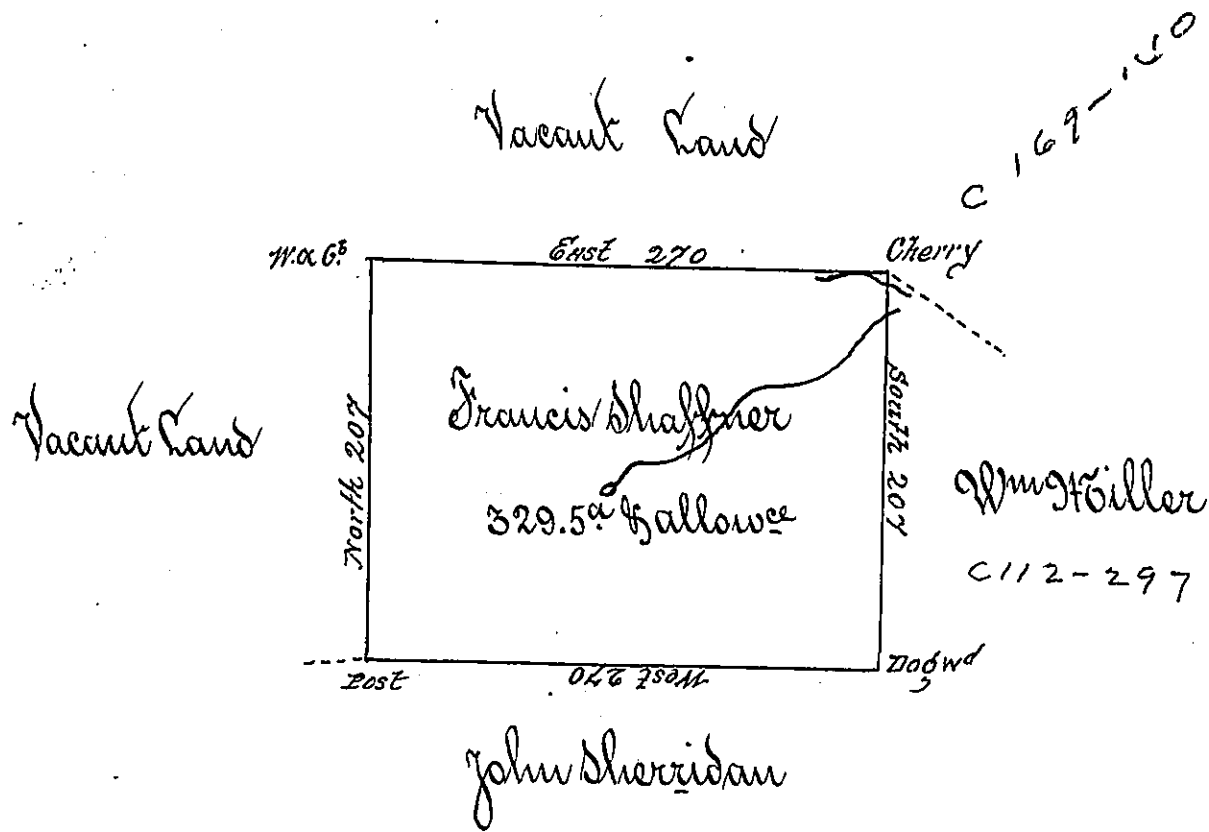 Vacant Land
W. & Gs.
East 270
Cherry
Vacant Land
North 207
Francis Shaffner
329.5a & allowce
South 207
Wm Miller
C112-297
Post
West 270
Dogwd
John Sherridan